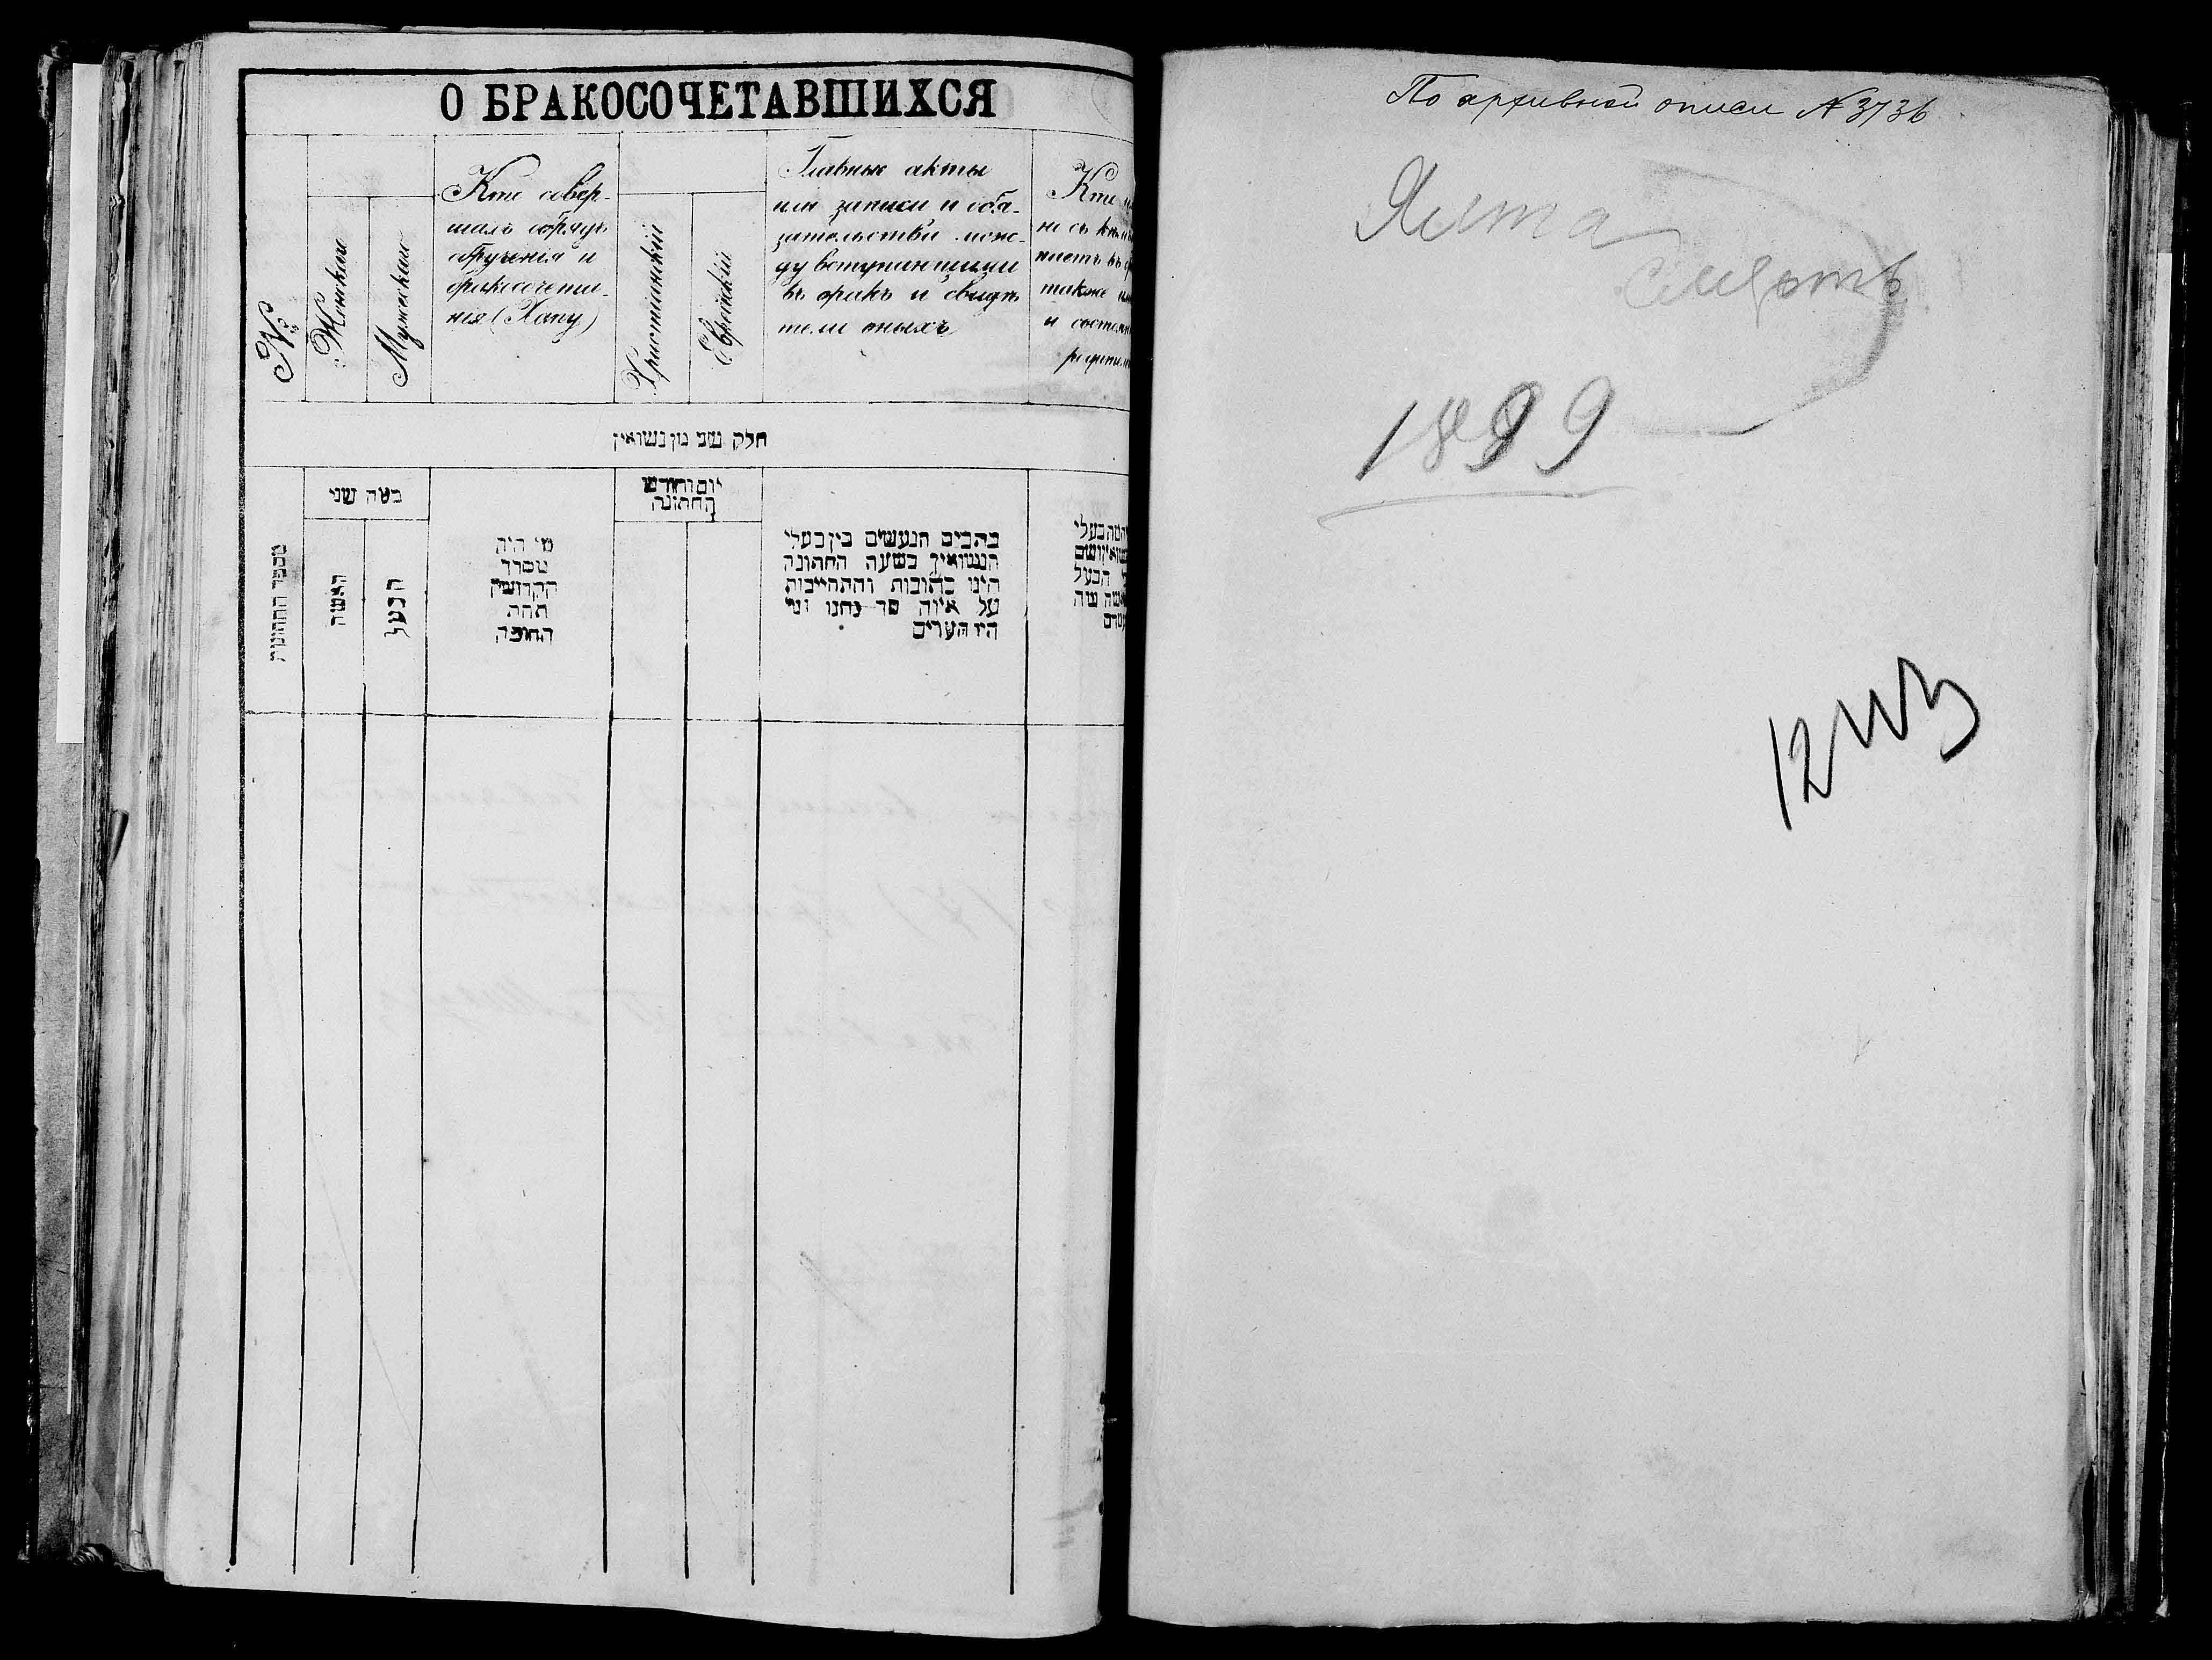 О БРАКОСОЧЕТАВШИХСЯ
№
Женскаго
Мужескаго
Кто совер-
шалъ обрядъ
обрученія и
бракосочета-
нія (Хапу)
Христіанскій
Еврейскій
Главные акты
или записи и обя-
зательства меж-
ду вступающими
въ бракъ и свидѣ
тели оныхъ
Кто
но съ кѣмъ
паетъ въ
также
и состоян
родител
חלק שני מן נשואין
מספר החתונות
כמה שני
האשה
הבעל
מי היה
מסדר
הקדושין
תחת
החופה
יום וחודש
החתונה
כתבים הנעשים בין בעלי
הנשואין בשעת החתונה
היינו כתובות והתחייבות
על איזה סך נתנו ומי
היו העדים
הבעל
По архивной описи № 3736
Ялта
Смерть
1899
12